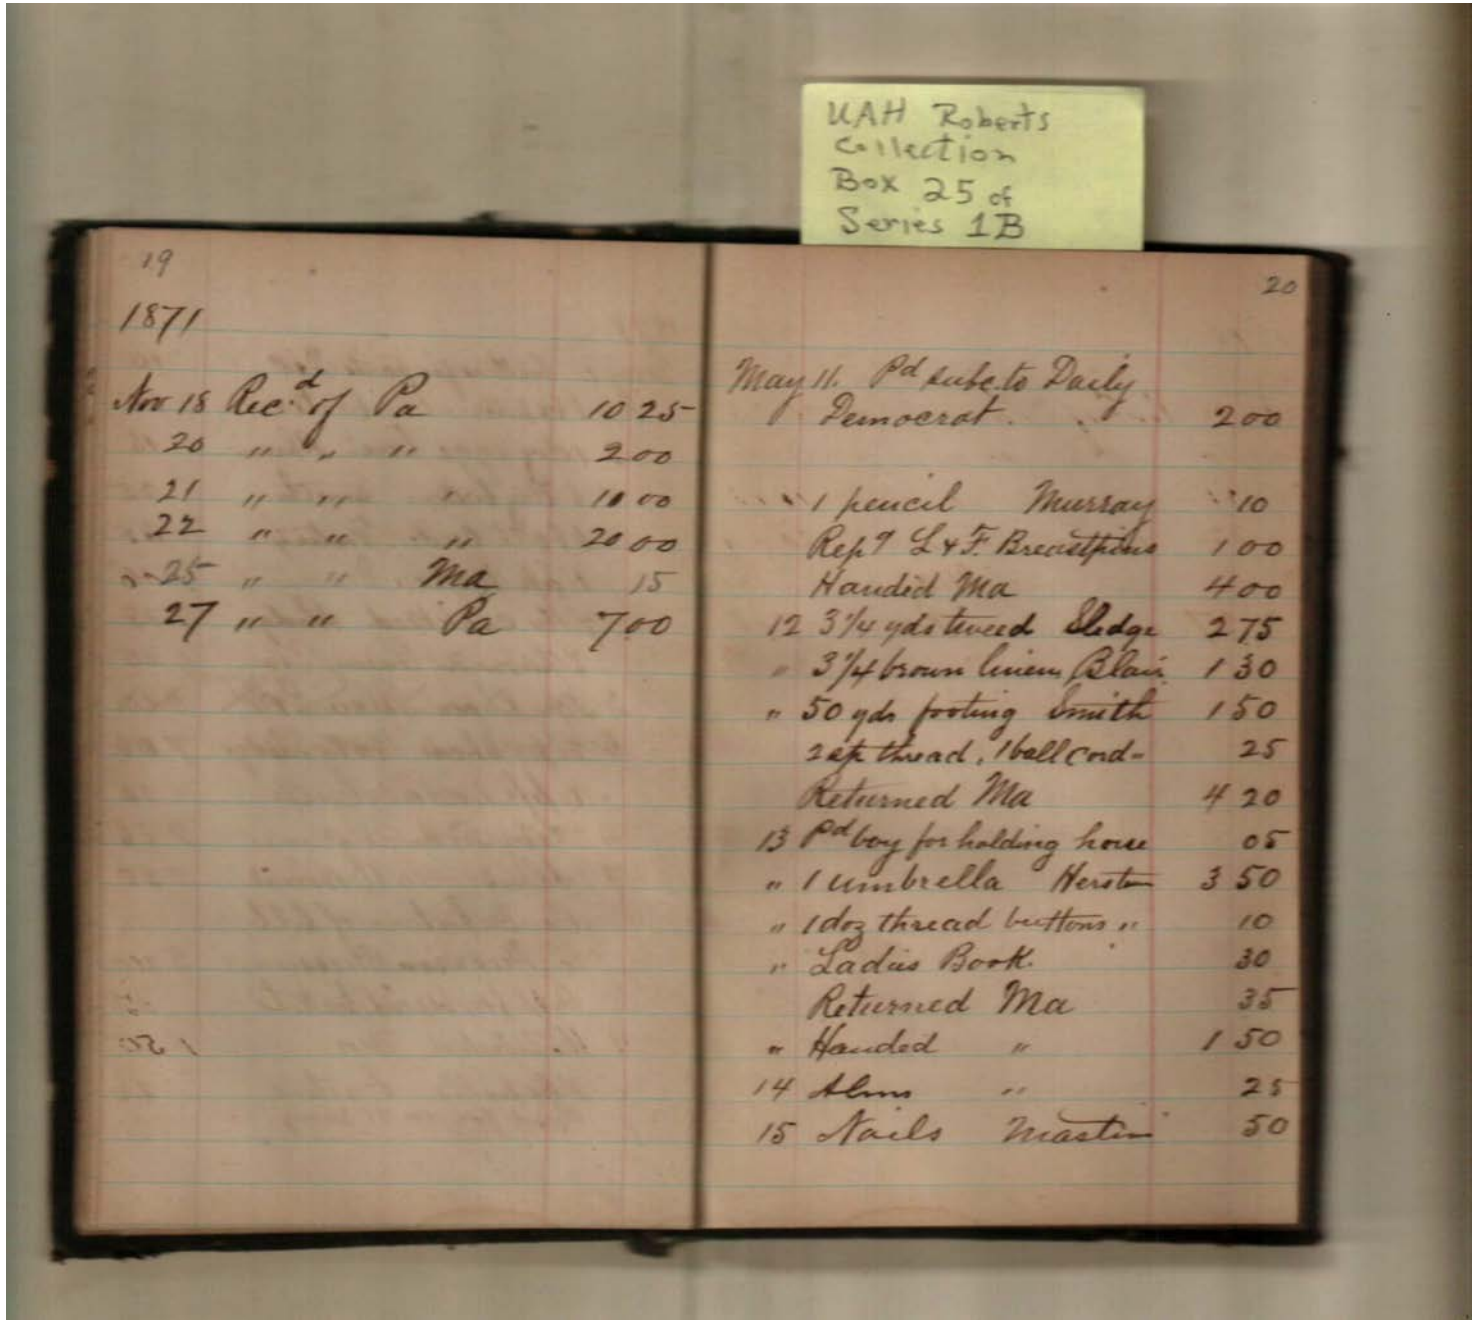 UAH Roberts
Collection
Box 25 of
Series 1B
19
1871
Nov 18 Rec.d of Pa 10 25
20 " " " 2 00
21 " " " 10 00
22 " " " 20 00
25 " " Ma 15
27 " " Pa 7 00
20
May 11. Pd subc. to Daily
Democrat. 2 00
1 pencil Murray 10
Rep'g L & F. Breastpins 1 00
Handed Ma 4 00
12 3 1/4 yds tweed Sledge 2 75
" 3 1/4 brown linen Blair 1 30
" 50 yds footing Smith 1 50
2 sp thread, 1 ball cord - 25
Returned Ma 4 20
13 Pd boy for holding horse 05
" 1 umbrella 3 50
" 1 doz thread buttons " 10
" Ladies Book. 30
Returned Ma 35
" Handed " 1 50
14 Alms " 25
15 Nails Mastin 50